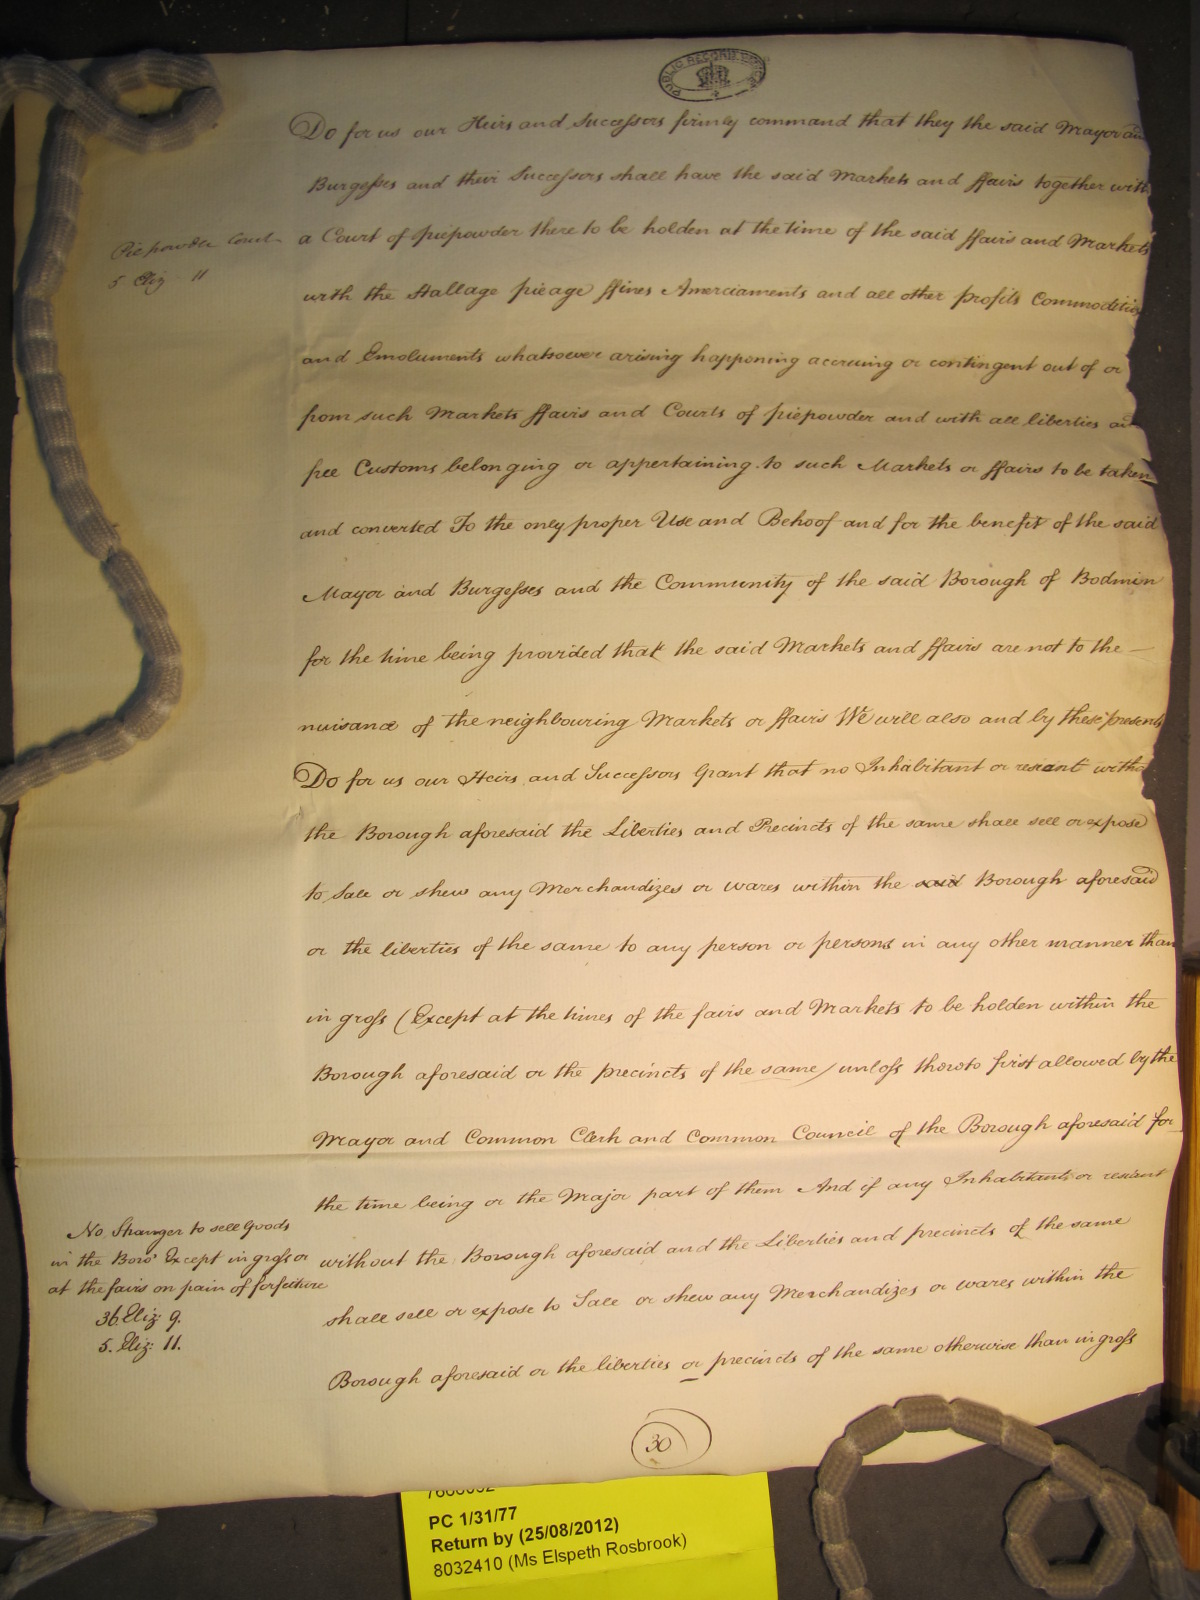 PUBLIC RECORD OFFICE
Do for us our Heirs and Successors firmly command that they the said Mayor an
Burgesses and their Successors shall have the said Markets and ffairs together with
Piepowder Court
5 Eliz 11
a Court of piepowder there to be holden at the time of the said ffairs and Markets
with the Stallage pieage ffines Amerciaments and all other profits Commodities
and Emoluments whatsoever arising happening accruing or contingent out of or
from such Markets ffairs and Courts of piepowder and with all liberties and
free Customs belonging or appertaining to such Markets or ffairs to be taken
and converted To the only proper Use and Behoof and for the benefit of the said
Mayor and Burgesses and the Community of the said Borough of Bodmin
for the time being provided that the said Markets and ffairs are not to the —
nuisance of the neighbouring Markets or ffairs We will also and by these presents
Do for us our Heirs and Successors Grant that no Inhabitant or resiant witho
the Borough aforesaid the Liberties and Precincts of the same shall sell or expose
to Sale or shew any Merchandizes or wares within the said Borough aforesaid
or the liberties of the same to any person or persons in any other manner than
in gross (Except at the times of the fairs and Markets to be holden within the
Borough aforesaid or the precincts of the same / unless thereto first allowed by the
Mayor and Common Clerk and Common Council of the Borough aforesaid for
the time being or the Major part of them And if any Inhabitant or resiant
No Stranger to sell Goods
in the Boro' Except in gross or
at the fairs on pain of forfeiture
36. Eliz: 9.
5. Eliz: 11.
without the Borough aforesaid and the Liberties and precincts of the same
shall sell or expose to Sale or shew any Merchandizes or wares within the
Borough aforesaid or the liberties or precincts of the same otherwise than in gross
30
PC 1/31/77
Return by (25/08/2012)
8032410 (Ms Elspeth Rosbrook)